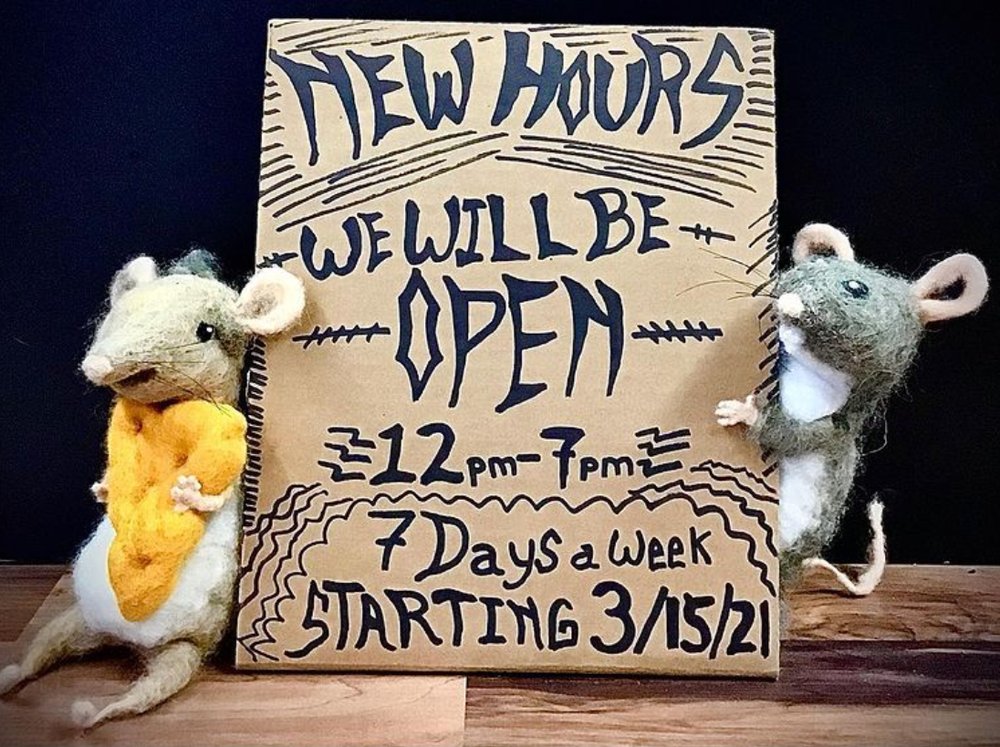 NEW HOURS
WE WILL BE
OPEN
12pm-7pm
7 Days a week
STARTING 3/15/21